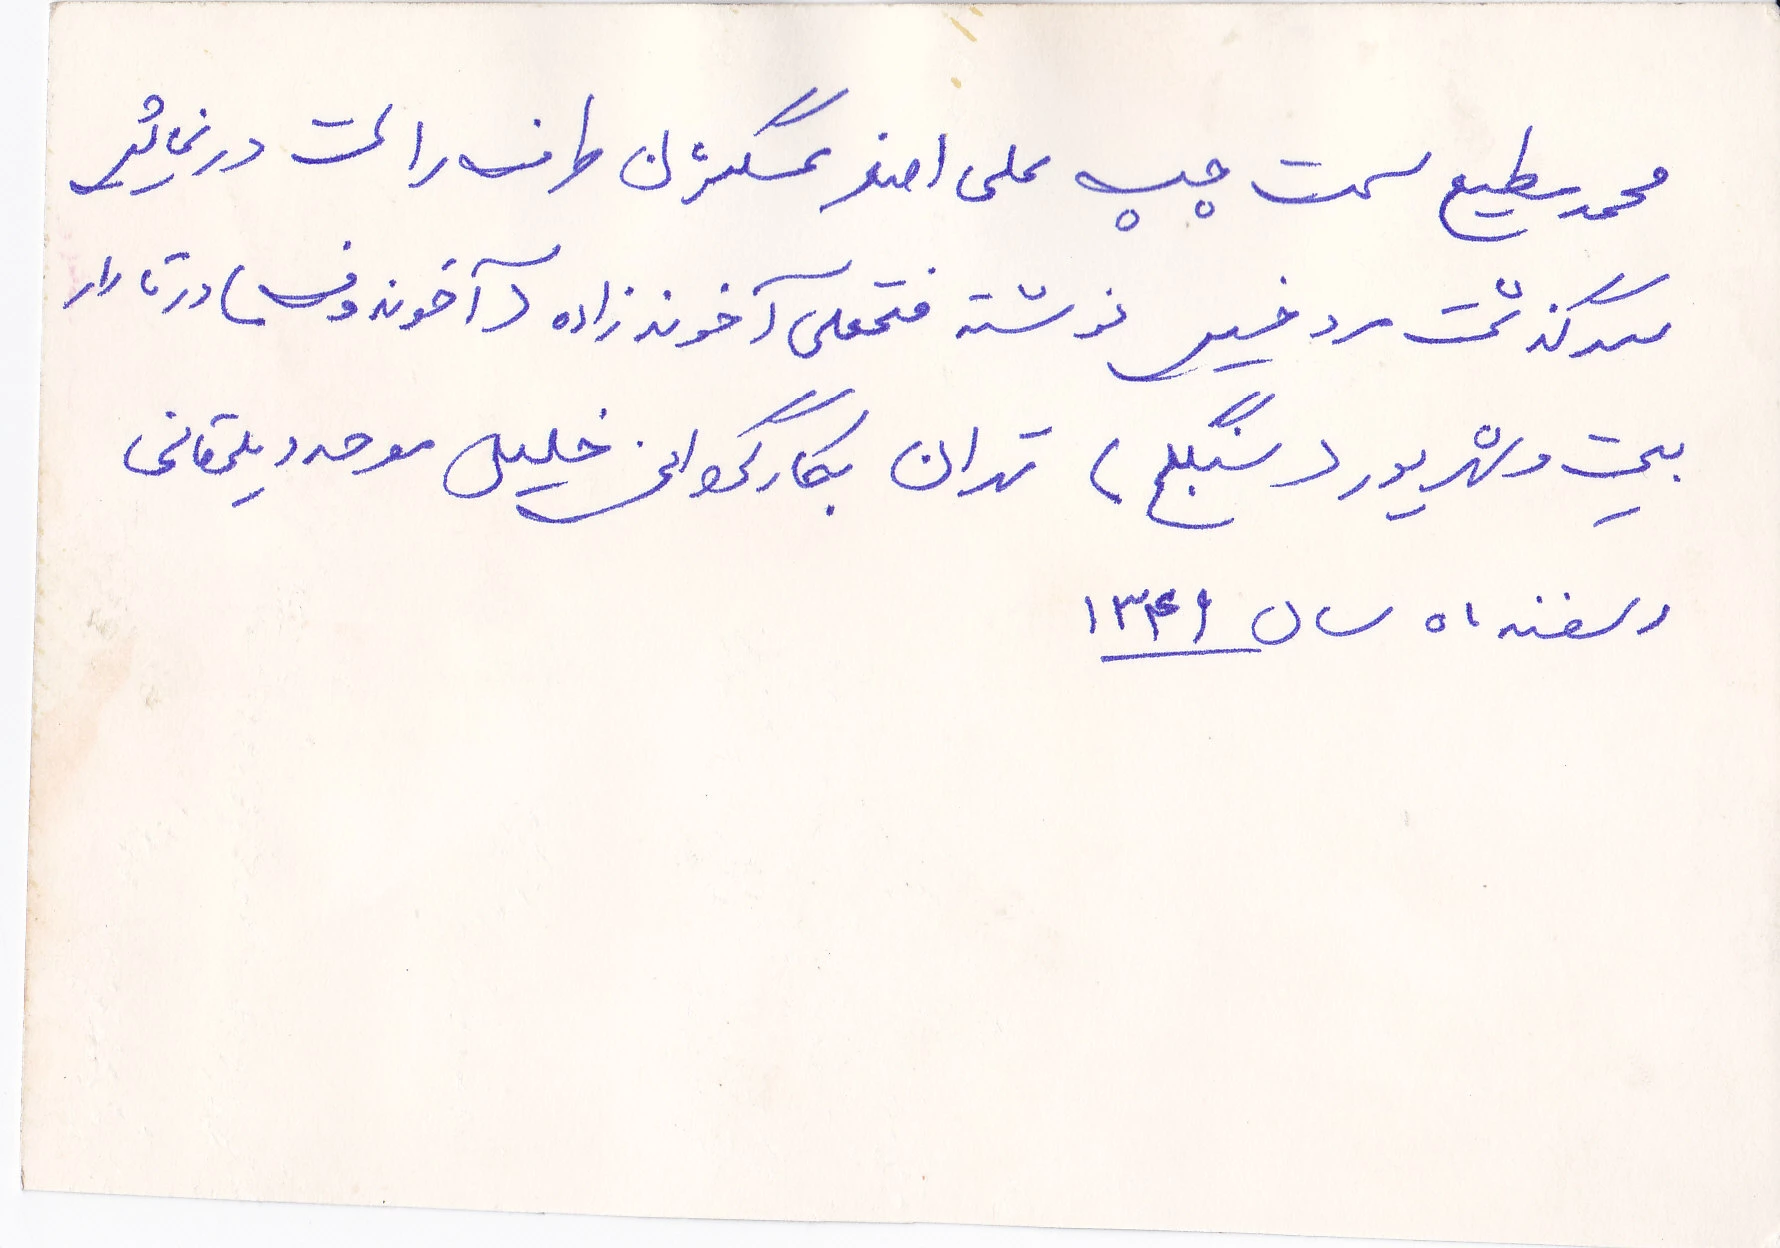 محمد مطیع سمت چپ علی اصغر عسگریان طرف راست در نمایش
سرگذشت مرد خسیس نوشته فتحعلی آخوندزاده (آخوندوف) در تاتار
بیست و شهریور (سنگلج) تهران بکارگردانی خلیل موحد دیلمقانی
اسفند ماه سال ۱۳۴۶